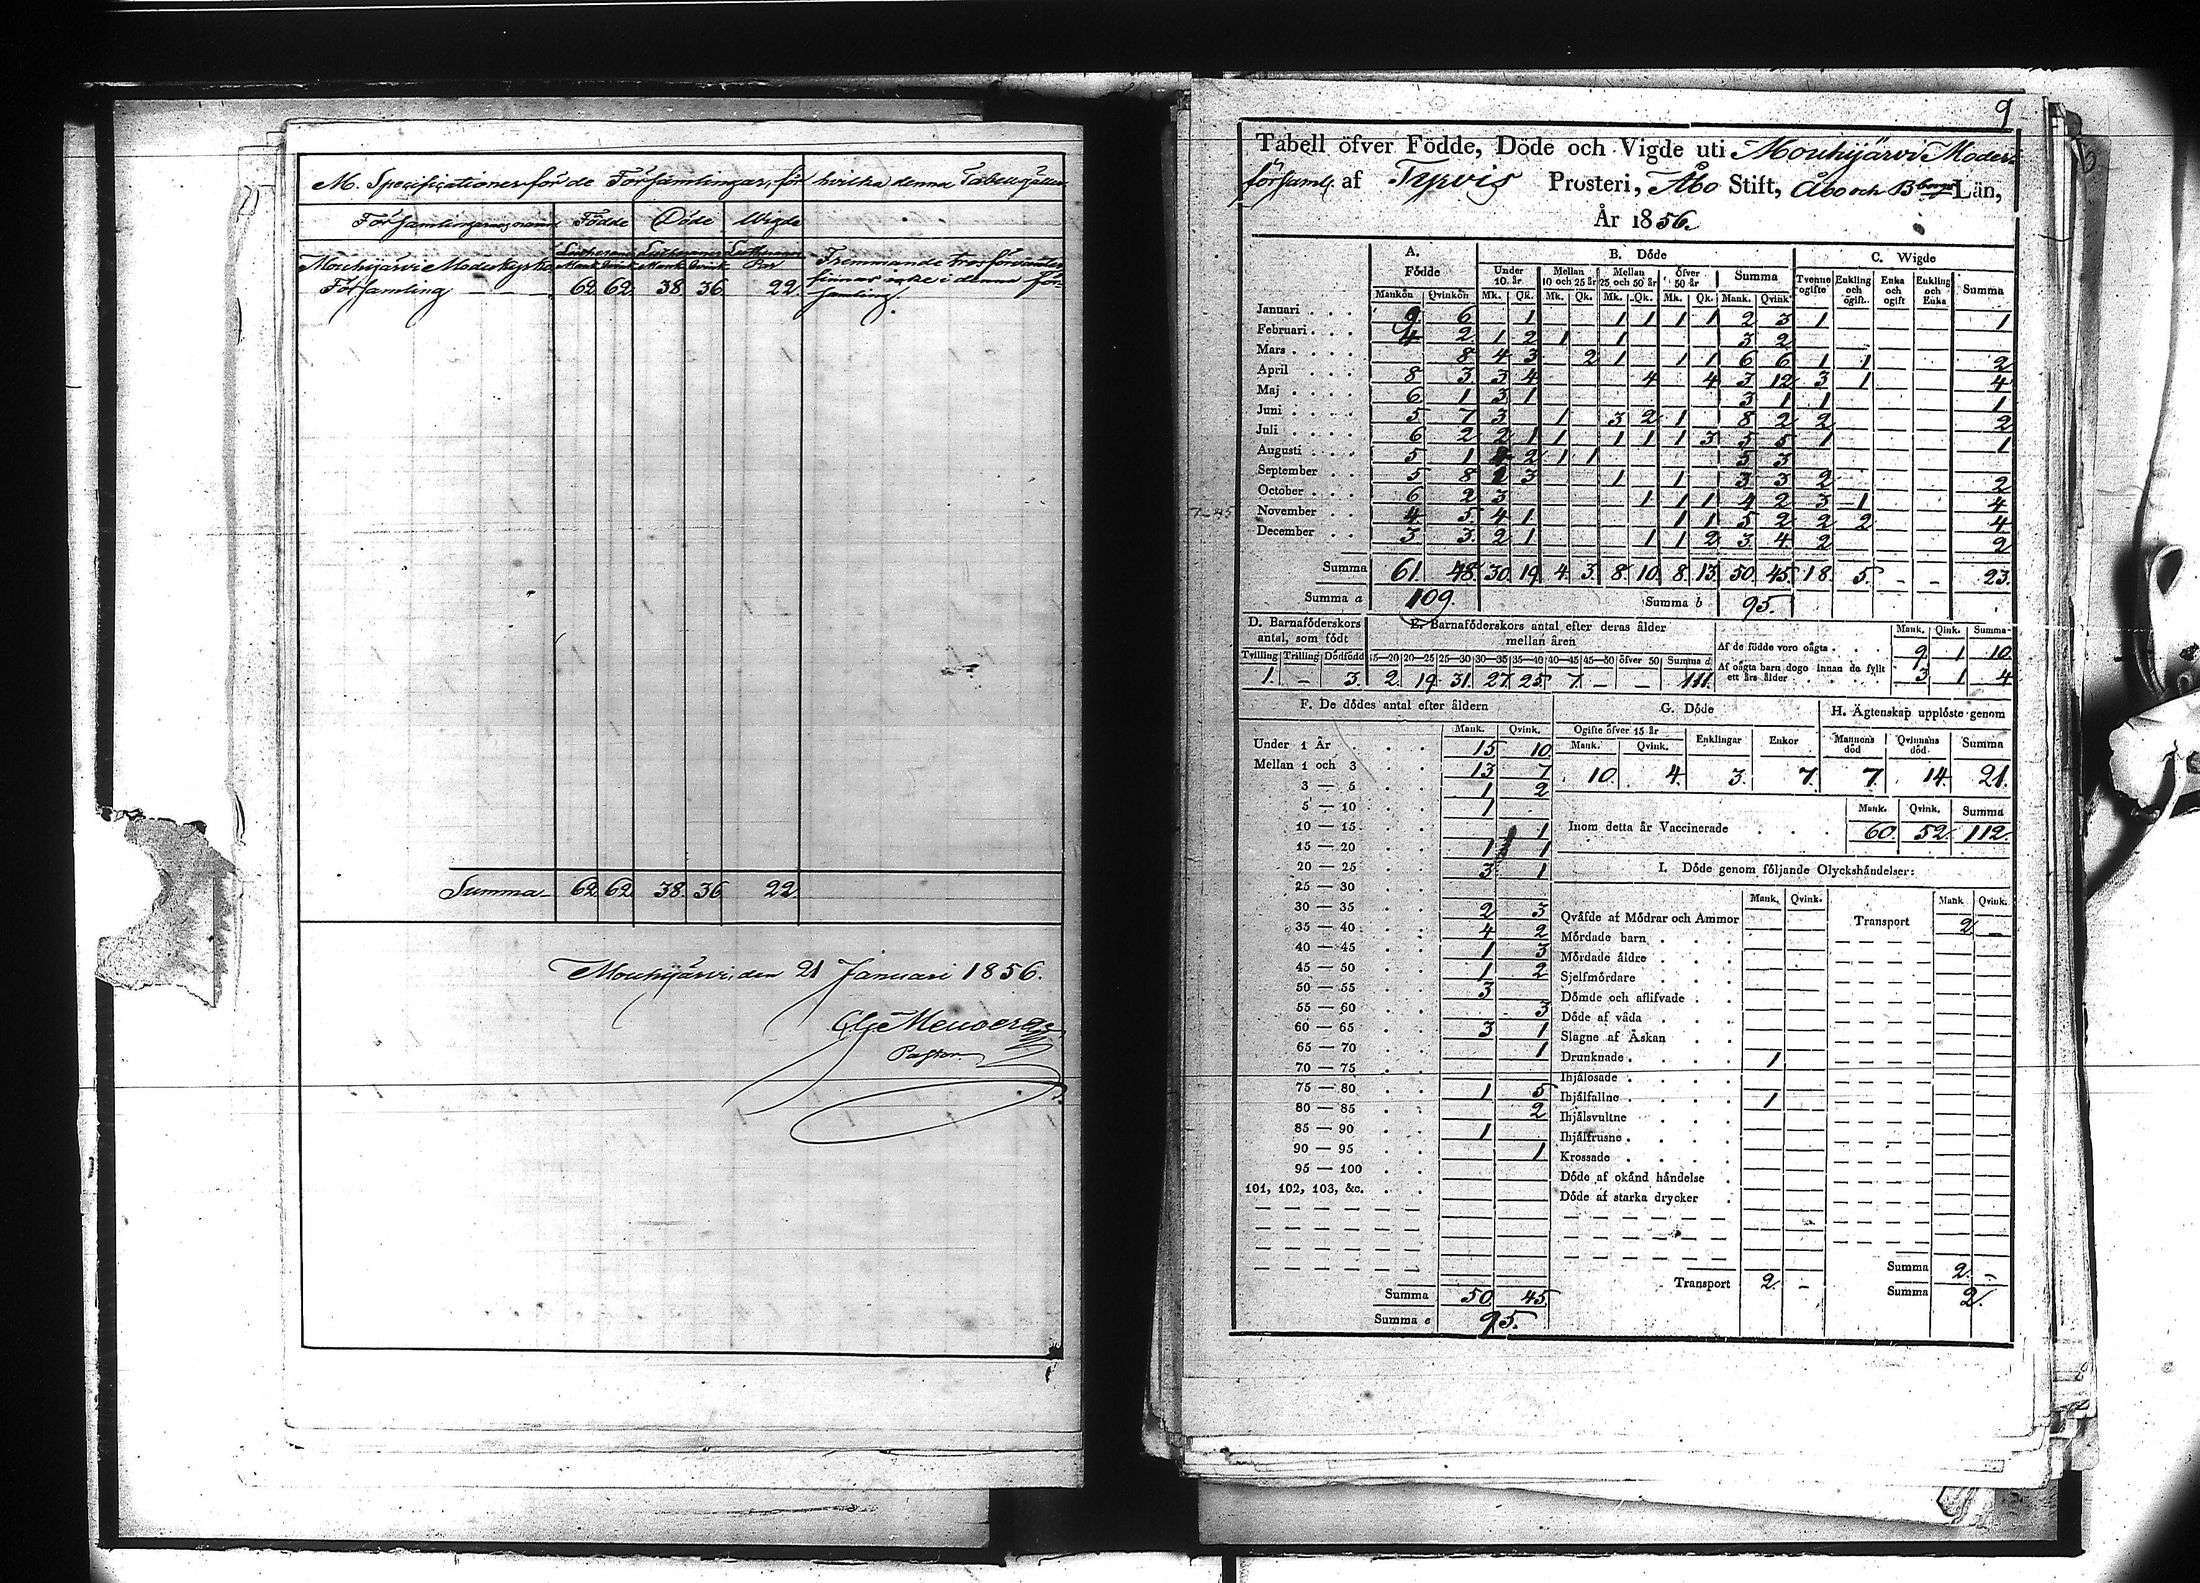 M. Specificationer för de Församlingar, för hvilka denna Tabell gäller
Församlingarnas namn Födde Döde Wigde
Lutheraner Lutheraner Lutheraner
Mank. Qvink. Mank. Qvink. Par
Mouhijärvi Moderkyrko Främmande trosförvandter
Församling 62 62 38 36 22 finnas icke i denna för-
samling.
Summa 62 62 38 36 22
Mouhijärvi, den 21 Januari 1856.
Pastor
9
Tabell öfver Födde, Döde och Vigde uti Mouhijärvi Moder-
församl. af Tyrvis Prosteri, Åbo Stift, Åbo och Bborgs Län,
År 1856.
A. Födde B. Döde C. Vigde
Under 10 år Mellan 10 och 25 år Mellan 25 och 50 år öfver 50 år Summa Tvenne ogifte Enkling och ogift. Enka och ogift Enkling och Enka Summa
Mankön Qvinkön Mk. Qk. Mk. Qk. Mk. Qk. Mk. Qk. Mank. Qvink.
Januari 9 6 1 1 1 1 1 2 3 1 1
Februari 4 2 1 2 1 1 3 2
Mars 8 4 3 2 1 1 1 6 6 1 1 2
April 8 3 3 4 4 4 3 12 3 1 4
Maj 6 1 3 1 3 1 1 1
Juni 5 7 3 1 3 2 1 8 2 2 2
Juli 6 2 2 1 1 1 1 1 3 5 5 1 1
Augusti 5 1 4 2 1 1 5 3
September 5 8 3 1 1 3 3 2 2
October 6 2 3 1 1 1 4 2 3 1 4
November 4 5 4 1 1 1 5 2 2 2 4
December 3 3 2 1 1 1 2 3 4 2 2
Summa 61 48 30 19 4 3 8 10 8 13 50 45 18 5 - - 23
Summa a 109. Summa b 95.
D. Barnaföderskors antal, som födt
E. Barnaföderskors antal efter deras ålder mellan åren
Tvilling Trilling Dödfödd 15—20 20—25 25—30 30—35 35—40 40—45 45—50 öfver 50 Summa d
1 - 3 2 19 31 27 25 7 - - 111
Mank. Qink. Summa
Af de födde voro oägta 9 1 10
Af oägta barn dogo innan de fyllt ett års ålder 3 1 4
F. De dödes antal efter åldern
Mank. Qvink.
Under 1 År 15 10
Mellan 1 och 3 13 7
3 — 5 1 2
5 — 10 1
10 — 15 1
15 — 20 1 1
20 — 25 3 1
25 — 30
30 — 35 2 3
35 — 40 4 2
40 — 45 1 3
45 — 50 1 2
50 — 55 3
55 — 60 3
60 — 65 3 1
65 — 70 1
70 — 75
75 — 80 1 5
80 — 85 2
85 — 90 1
90 — 95 1
95 — 100
101, 102, 103, &c.
Summa 50 45
Summa e 95.
G. Döde
Ogifte öfver 15 år Enklingar Enkor
Mank. Qvink.
10 4 3 7
H. Ägtenskap upplöste genom
Mannens död Qvinnans död Summa
7 14 21
Mank. Qvink. Summa
Inom detta år Vaccinerade 60 52 112
I. Döde genom följande Olyckshändelser:
Mank. Qvink. Mank Qvink.
Qväfde af Mödrar och Ammor Transport 2 -
Mördade barn
Mördade äldre
Sjelfmördare
Dömde och aflifvade
Döde af våda
Slagne af Åskan
Drunknade 1
Ihjälosade
Ihjälfallne 1
Ihjälsvultne
Ihjälfrusne
Krossade
Döde af okänd händelse
Döde af starka drycker
Summa 2 -
Transport 2 - Summa 2.